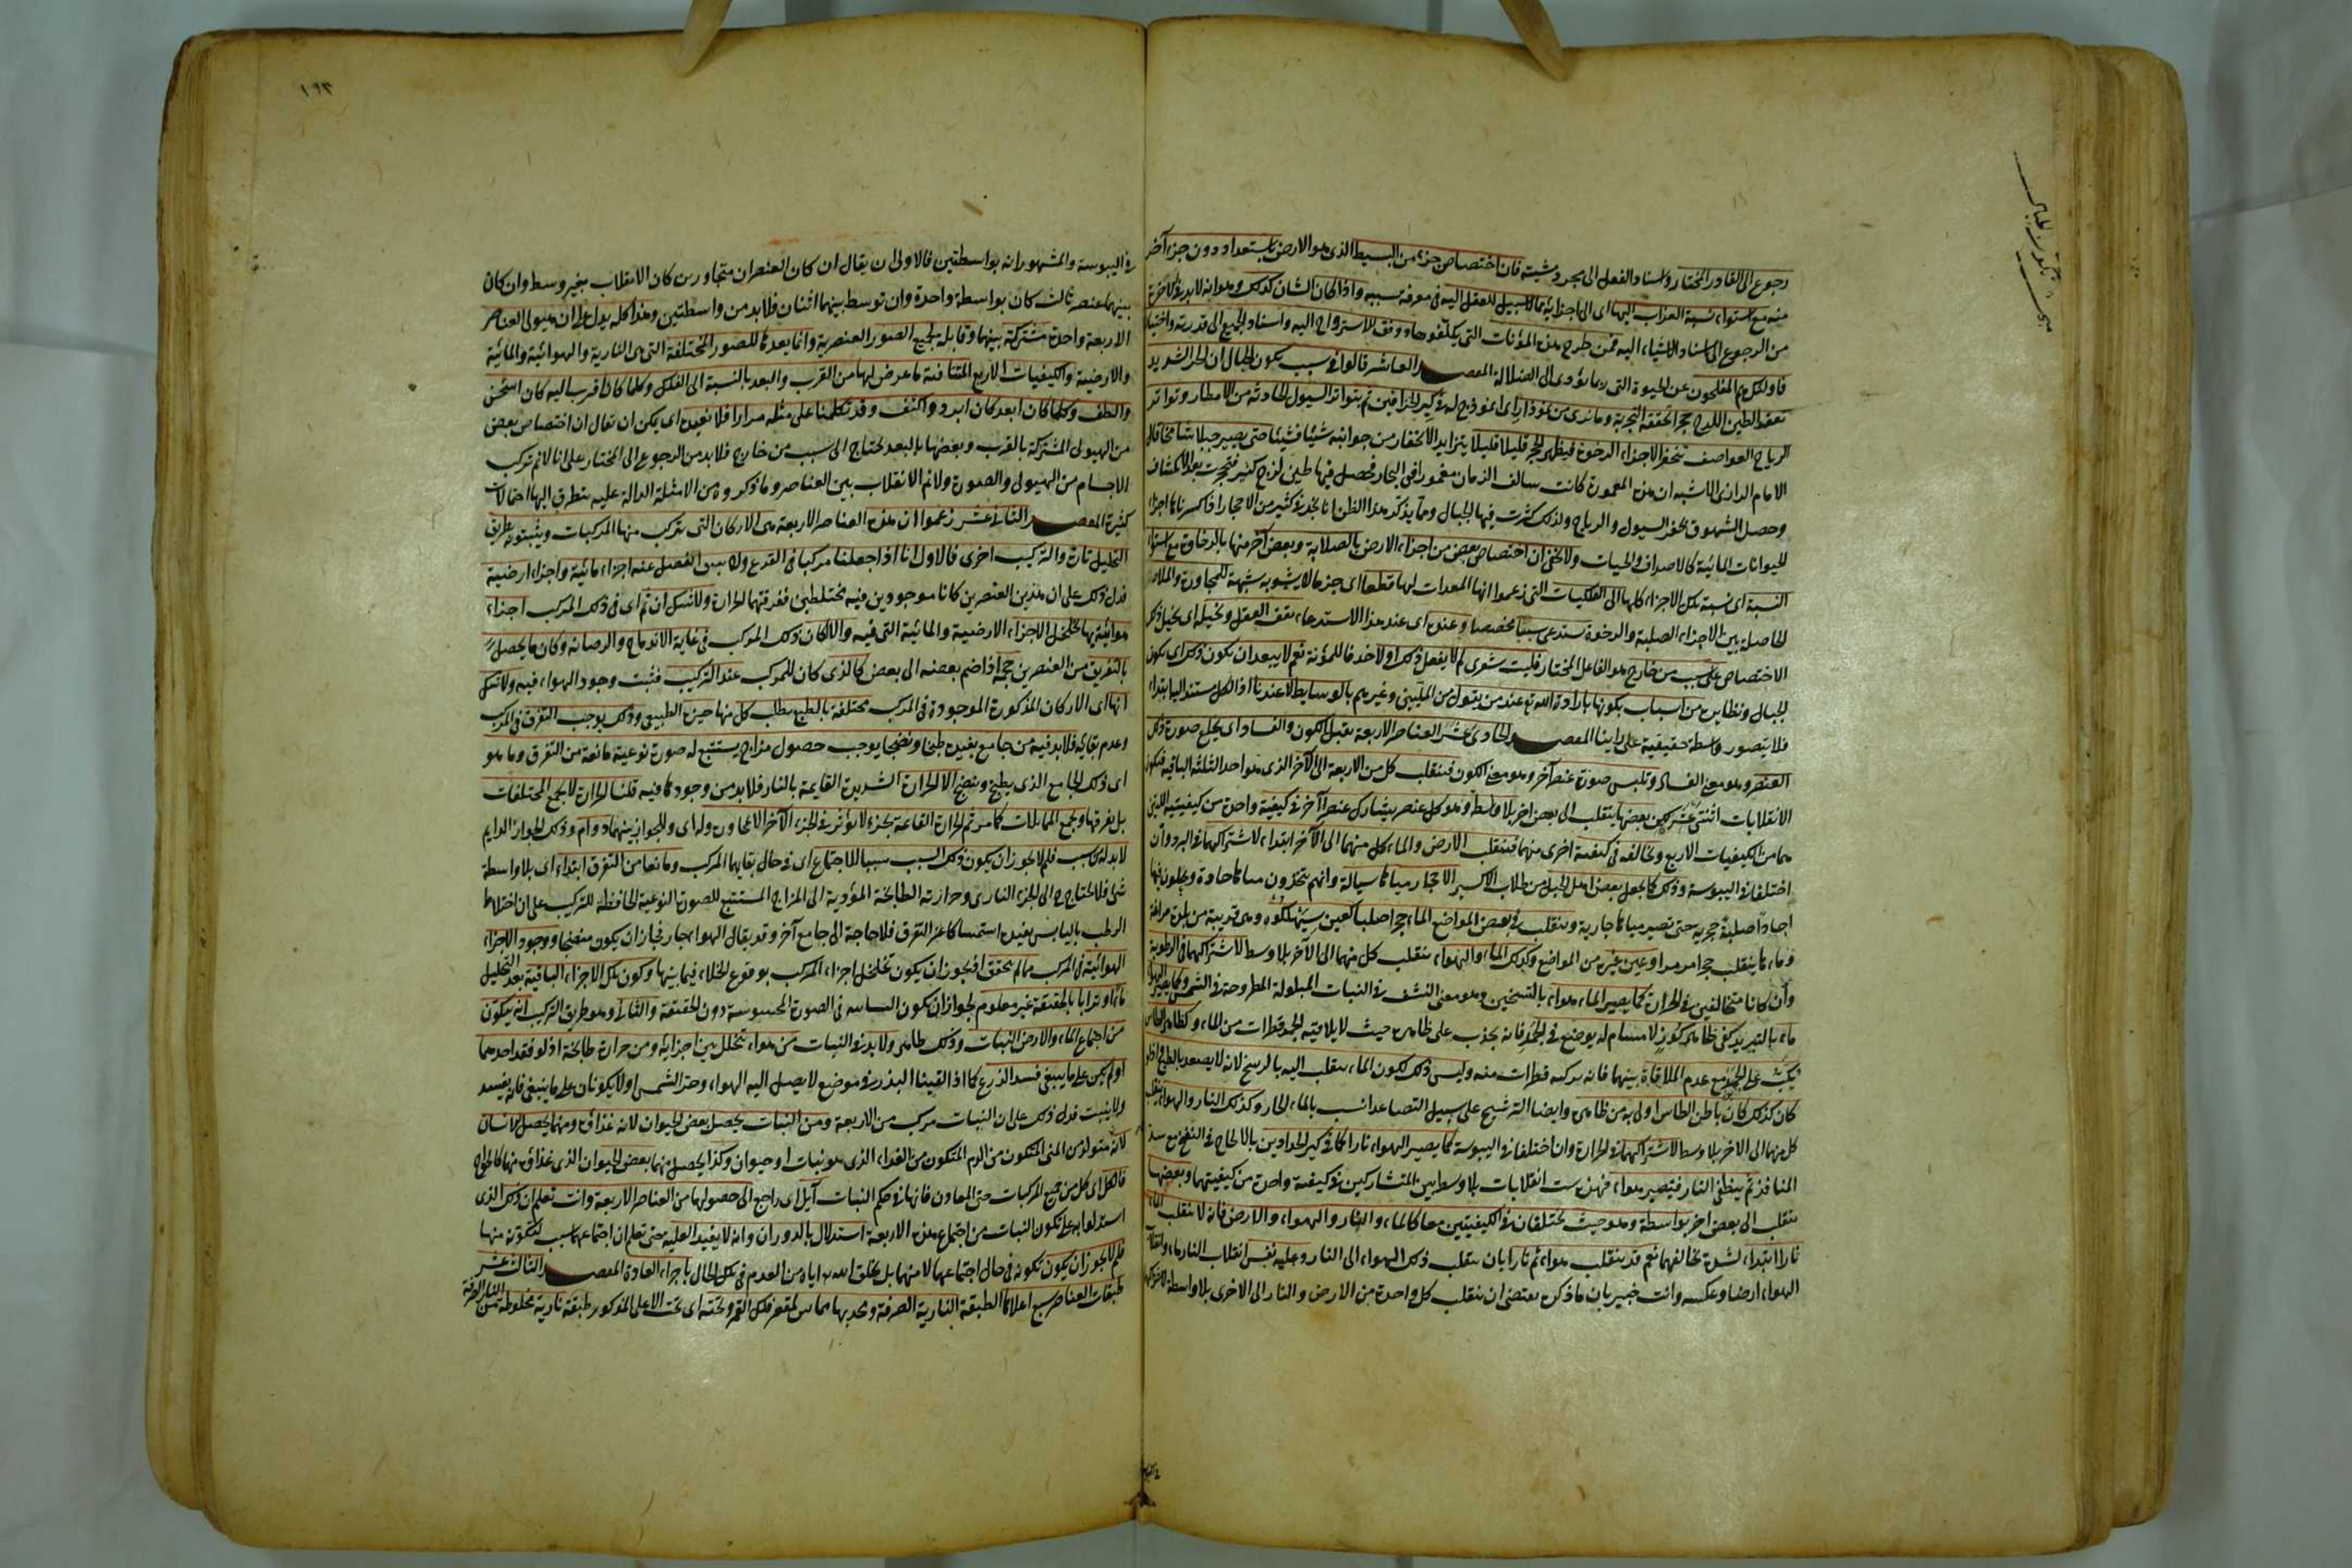 رجوع الى القادر المختار واسناد الفعل الى مجرد مشيته فان اختصاص جزء من البسيط الذى هو الارض باستعداد دون جزء آخر
منه مع استواء نسبة العذاب اليها اى الى اجزائه مما لا سبيل للعقل اليه فى معرفة سببه واذا كان الشان كذلك وهو انه لا بد بالآخرة
من الرجوع الى اسناد الاشياء اليه فمن طرح هذه المؤنات التى يكلفوها ووفق للاسترواح اليه واسناد الجميع الى قدرته واختياره
فاولئك هم المفلحون عن الحيوة التى ربما يؤدى الى الضلالة المقصد العاشر قالوا فى سبب تكون الجبال ان الحر الشديد
تعقد الطين اللزج حجرا تحققه التجربة وما نرى من نموذارى اى انموذج له فى كير الخزافين ثم بتواتر السيول الحادثة من الامطار وتواتر
الرياح العواصف تنحفر الاجزاء الرخوة فيظهر الحجر قليلا قليلا يتزايد الانحفار من جوانبه شيئا فشيئا حتى يصير جبلا شامخا قال
الامام الرازى الاشبه ان هذه المعمورة كانت سالف الزمان مغمورة فى البحار فحصل فيها طين لزج كثير فتحجرت بعد الانكشاف
وحصل الشهوق بحفر السيول والرياح ولذلك كثرت فيها الجبال ومما يؤكد هذا الظن انا نجد فى كثير من الاحجار اذا كسرناها اجزاء
الحيوانات المائية كالاصداف والحيات ولا يخفى ان اختصاص بعض من اجزاء الارض بالصلابة وبعض آخر منها بالرخاوة مع استواء
النسبة اى نسبة تلك الاجزاء كلها الى الفلكيات التى زعموا انها المعدات لها قطعا اى جزما لا يشوبه شبهة للمجاورة والملاصقة
الحاصلة بين الاجزاء الصلبة والرخوة تستدعى سببا مخصصا وعنده اى عند هذا الاستدعاء يقف العقل ويحيله اى يحيل ذلك
الاختصاص على سبب من خارج هو الفاعل المختار فليت شعرى لم لا يفعل ذلك اولا حذفا للمؤنة نعم لا يبعد ان يكون ذلك اى تكون
الجبال ونظايره من اسباب بكونها بارادة الله تع عند من يقول من المليين وغيرهم بالوسايط لا عندنا اذ الكل مستند اليه ابتداء
فلا يتصور واسطة حقيقية على راينا المقصد الحادى عشر العناصر الاربعة يقبل الكون والفساد اى يخلع صورة ذلك
العنصر وهو معنى الفساد وتلبس صورة عنصر آخر وهو معنى الكون فينقلب كل من الاربعة الى الآخر الذى هو احد الثلثة الباقية فتكون
الانقلابات اثنتى عشرة لكن بعضها ينقلب الى بعض اخر بلا واسطة وهو كل عنصر يشارك عنصرا آخر فى كيفية واحدة من كيفيتيه اللتين
هما من الكيفيات الاربع ويخالفه فى كيفية اخرى منهما فينقلب الارض والماء كل منهما الى الآخر ابتداء لاشتراكهما فى البرد وان
اختلفا فى اليبوسة وذلك كما يجعل بعض اهل الحيل من طلاب الاكسير الاحجار مياها سيالة وانهم يتخذون مياها حادة ويحلون فيها
اجسادا صلبة حجرية حتى تصير مياها جارية وينقلب فى بعض المواضع الماء حجرا صلبا كعين سيهكوه وهى قريبة من بلدة مراغة
وماءها ينقلب حجرا مرمرا وعين غيره من المواضع وكذلك الماء والهواء ينقلب كل منهما الى الآخر بلا وسط لاشتراكهما فى الرطوبة
وان كانا متخالفين فى الحرارة كما يصير الماء هواء بالتسخين وهو معنى النشف فى الثياب المبلولة المطروحة فى الشمس وكما يصير الهواء
ماء بالتبريد كفى ظاهر كوز لا مسام له يوضع فى الجمد فانه يحدث على ظاهره حيث لا يلاقيه الجمد قطرات من الماء وكظاهر الطاس
يكب على الجمد مع عدم الملاقاة بينهما فانه يركبه قطرات منه وليس ذلك لكون الماء ينقلب اليه بالرشح لانه لا يصعد بالطبع اذ لو
كان كذلك كان باطن الطاس اولى به من ظاهره وايضا الترشيح على سبيل التصاعد انسب بالماء الحار وكذلك النار والهواء ينقلب
كل منهما الى الاخر بلا وسط لاشتراكهما فى الحرارة وان اختلفا فى اليبوسة كما يصير الهواء نارا كما فى كير الحدادين بالالحاح فى النفخ مع سد
المنافذ ثم ينطفى النار فتصير هواء فهذه ست انقلابات بلا وسط بين المتشاركين فى كيفية واحدة من كيفيتهما وبعضها
ينقلب الى بعض اخر بواسطة وهو حيث يختلفان فى الكيفيتين معا كالماء والنار والهواء والارض فانه لا ينقلب الماء
نارا ابتداء لشدة تخالفهما نعم قد ينقلب هواء ثم نارا بان ينقلب ذلك الهواء الى النار وعليه فقس انقلاب النار ماء وانقلاب
الهواء ارضا وعكسه وانت خبير بان ما ذكره يقتضى ان ينقلب كل واحدة من الارض والنار الى الاخرى بلا واسطة لاشتراكهما
فى اليبوسة
١٩٣
فى اليبوسة والمشهور انه بواسطتين فالاولى ان يقال ان كان العنصران متجاورين كان الانقلاب بغير وسط وان كان
بينهما عنصر ثالث كان بواسطة واحدة وان توسط بينهما اثنان فلا بد من واسطتين وهذا كله يدل على ان هيولى العناصر
الاربعة واحدة مشتركة بينها وقابلة لجميع الصور العنصرية وانما يعدها للصور المختلفة التى هى النارية والهوائية والمائية
والارضية والكيفيات الاربع المتنافية ما عرض لها من القرب والبعد بالنسبة الى الفلك وكلما كان اقرب اليه كان اسخن
والطف وكلما كان ابعد كان ابرد واكثف وقد تكلمنا على مثله مرارا فلا نعيده اى يمكن ان يقال ان اختصاص بعض
من الهيولى المشتركة بالقرب وبعضها بالبعد يحتاج الى سبب من خارج فلا بد من الرجوع الى المختار على انا لا نم تركب
الاجسام من الهيولى والصورة ولا نم الانقلاب بين العناصر وما ذكروه من الامثلة الدالة عليه يتطرق اليها احتمالات
كثيرة المقصد الثانى عشر زعموا ان هذه العناصر الاربعة هى الاركان التى يتركب منها المركبات ويثبتونه بطريق
التحليل تارة والتركيب اخرى فالاول انا اذا جعلنا مركبا فى القرع والانبيق انفصل عنه اجزاء مائية واجزاء ارضية
فدل ذلك على ان هذين العنصرين كانا موجودين فيه مختلطين ففرقتهما الحرارة ولا شك ان ثم اى فى ذلك المركب اجزاء
هوائية بها تخلخل الاجزاء الارضية والمائية التى فيه والا لكان ذلك المركب فى غاية الاندماج والرصانة وكان ما يحصل
بالتفريق من العنصرين حجمه اذا ضم بعضه الى بعض كالذى كان للمركب عند التركيب فثبت وجود الهواء فيه ولا شك
انها اى الاركان المذكورة الموجودة فى المركب مختلفة بالطبع يطلب كل منها حيزه الطبيعى وذلك يوجب التفرق فى المركب
وعدم بقائه فلا بد فيه من جامع يفيده طبخا ونضجا يوجب حصول مزاج يستتبع له صورة نوعية مانعة من التفرق وما هو
اى ذلك الجامع الذى يطبخ وينضج الا الحرارة الشديدة القايمة بالنار فلا بد من وجودها فيه قلنا الحرارة لا تجمع المختلفات
بل يفرقها ويجمع المماثلات كما مر ثم الحرارة القايمة بجزء لا يؤثر فى الجزء الآخر الا بمجاورة وله اى وللجوار بينهما دوام وذلك الجوار الدايم
لا بد له من سبب فلم لا يجوز ان يكون ذلك السبب سببا للاجتماع اى فى حال بقايها المركب ومانعا من التفرق ابتداء اى بلا واسطة
شى فلا يحتاج ح الى الجزء النارى وحرارته الطابخة المؤدية الى المزاج المستتبع للصورة النوعية الحافظة للتركيب على ان اختلاط
الرطب باليابس يفيده استمساكا عن التفرق فلا حاجة الى جامع آخر وقد يقال الهواء حار فجاز ان يكون منضجا ووجود الاجزاء
الهوائية فى المركب مما لم يتحقق اذ يجوز ان يكون تخلخل اجزاء المركب بوقوع الخلاء فيما بينها وكون تلك الاجزاء الباقية بعد التحليل
ماء او ترابا بالحقيقة غير معلوم لجواز ان يكون التشابه فى الصورة المحسوسة دون الحقيقة والثانى وهو طريق التركيب انه يتكون
من اجتماع الماء والارض النبات وذلك ظاهر ولا بد فى النبات من هواء يتخلل بين اجزائه ومن حرارة طابخة اذ لو فقد احدهما
او لم يكن على ما ينبغى فسد الزرع كما اذا القينا البذر فى موضع لا يصل اليه الهواء وحر الشمس او لا يكونان على ما ينبغى فانه يفسد
ولا ينبت فدل ذلك على ان النبات مركب من الاربعة ومن النبات يحصل بعض الحيوان لانه غذاؤه ومنهما يحصل الانسان
لانه متولد من المنى المتكون من الدم المتكون من الغذاء الذى هو نبات او حيوان وكذا يحصل منهما بعض الحيوان الذى غذاؤه منهما كالجوارح
فالكل اى كل من جميع المركبات حتى المعادن فانها فى حكم النبات آيل اى راجع الى حصولها من العناصر الاربعة وانت تعلم ان ذلك الذى
استدلوا به على تكون النبات من اجتماع هذه الاربعة استدلال بالدوران وانه لا يفيد العلية حتى تعلم ان اجتماعها سبب لتكونه منها
فلم لا يجوز ان يكون تكونه فى حال اجتماعها لا منها بل بخلق الله اياه من العدم فى تلك الحال باجراء العادة المقصد الثالث عشر
طبقات العناصر سبع اعلاها الطبقة النارية الصرفة ومحدبها مماس لمقعر فلك القمر وتحته اى تحت الاعلى المذكور طبقة نارية مخلوطة من النار الصرفة